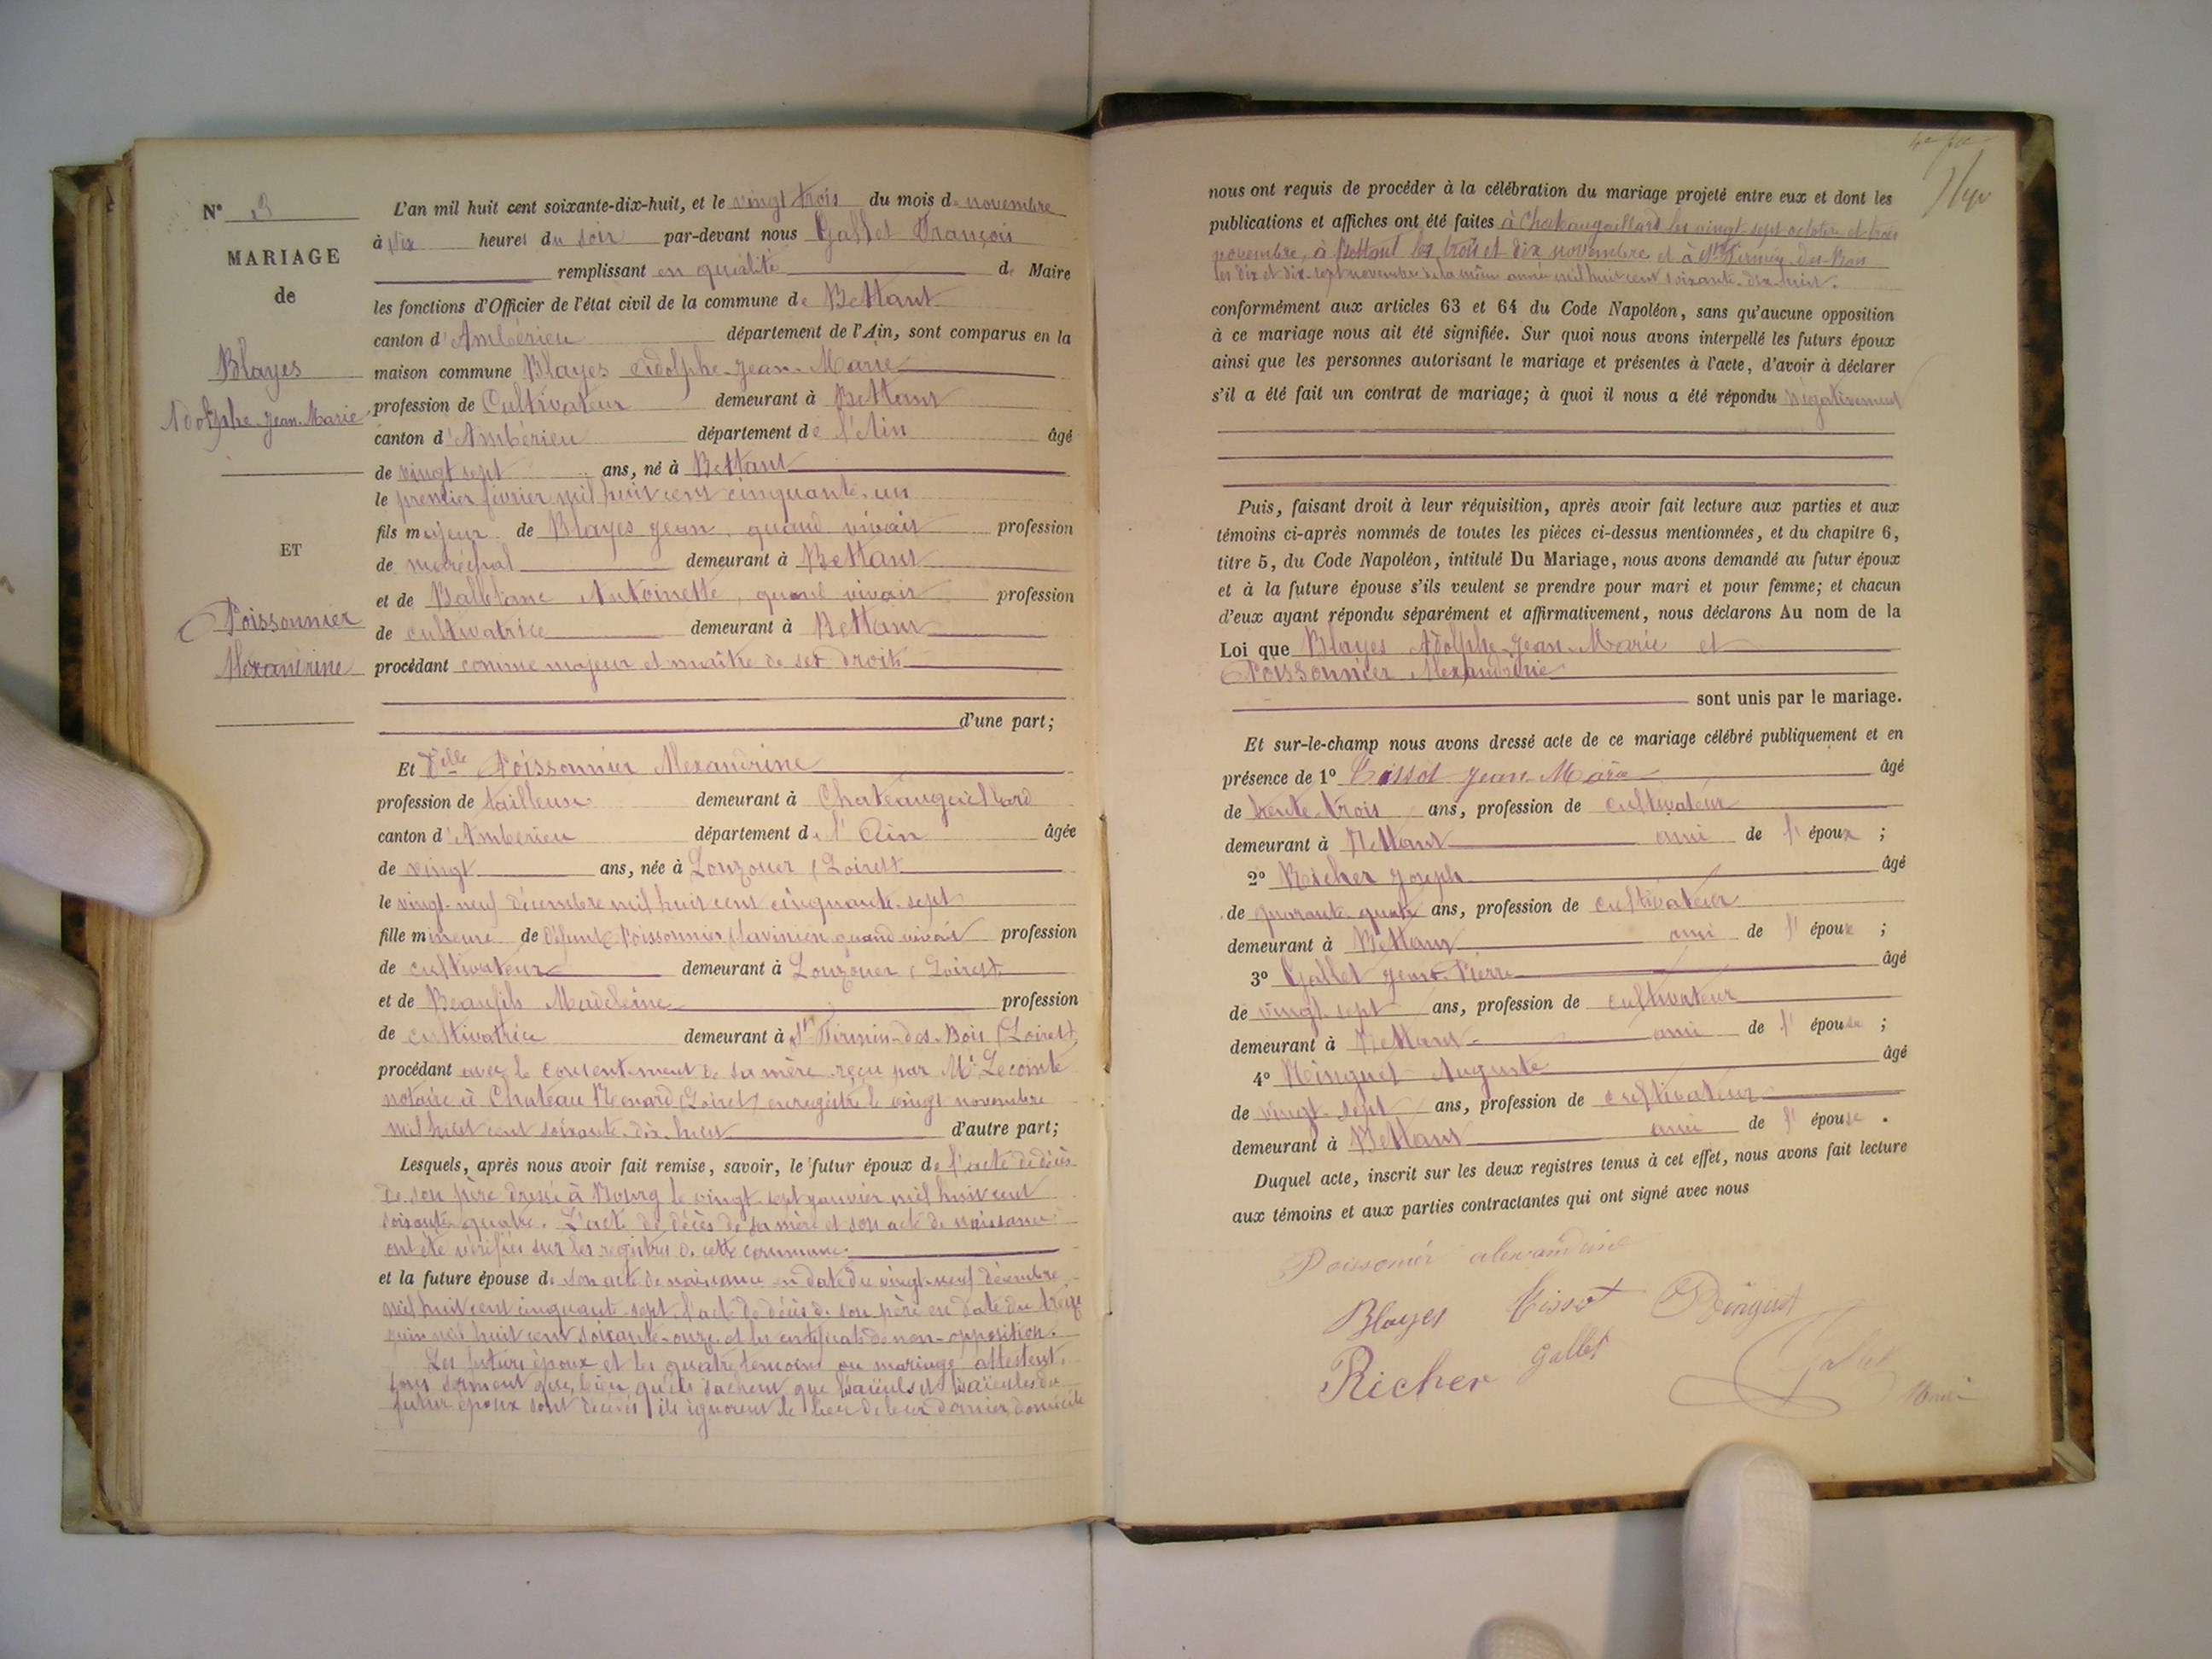 N° 3
MARIAGE
de
Blayes
Adolphe Jean Marie
ET
Poissonnier
Alexandrine
L'an mil huit cent soixante-dix-huit, et le vingt trois du mois de novembre
à dix heures du soir par-devant nous Gallet François
remplissant en qualité de Maire
les fonctions d'Officier de l'état civil de la commune de Bettant
canton d'Ambérieu département de l'Ain, sont comparus en la
maison commune Blayes Adolphe-Jean-Marie
profession de Cultivateur demeurant à Bettant
canton d'Ambérieu département de l'Ain âgé
de vingt sept ans, né à Bettant
le premier février mil huit cent cinquante-un
fils majeur de Blayes Jean, quand vivait profession
de maréchal demeurant à Bettant
et de Antoinette, quand vivait profession
de cultivatrice demeurant à Bettant
procédant comme majeur et maître de ses droits
d'une part;
Et Delle Poissonnier Alexandrine
profession de tailleuse demeurant à Chateaugaillard
canton d'Ambérieu département de l'Ain âgée
de vingt ans, née à Louzouer (Loiret)
le vingt-neuf décembre mil huit cent cinquante-sept
fille mineure de défunt Poissonnier Savinien quand vivait profession
de cultivateur demeurant à Louzouer (Loiret)
et de Beaufils Madeleine profession
de cultivatrice demeurant à St Firmin-des-Bois (Loiret)
procédant avec le consentement de sa mère reçu par Me Lecomte
notaire à Chateau Renard (Loiret) enregistré le vingt novembre
mil huit cent soixante-dix-huit d'autre part;
Lesquels, après nous avoir fait remise, savoir, le futur époux de l'acte de décès
de son père dressé à Bourg le vingt-sept janvier mil huit cent
soixante-quatre. L'acte de décès de sa mère et son acte de naissance
ont été vérifiés sur les registres de cette commune.
et la future épouse de son acte de naissance en date du vingt-neuf décembre
mil huit cent cinquante-sept l'acte de décès de son père en date du treize
juin mil huit cent soixante-onze et les certificats de non-opposition.
Les futurs époux et les quatre témoins au mariage attestent
sous serment que, bien qu'ils sachent que les aïeuls et les aïeules du
futur époux sont décédés, ils ignorent le lieu de leur dernier domicile
nous ont requis de procéder à la célébration du mariage projeté entre eux et dont les
publications et affiches ont été faites à Chateaugaillard les vingt-sept octobre et trois
novembre, à Bettant les trois et dix novembre et à St Firmin-des-Bois
les dix et dix-sept novembre de la même année mil huit cent soixante-dix-huit.
conformément aux articles 63 et 64 du Code Napoléon, sans qu'aucune opposition
à ce mariage nous ait été signifiée. Sur quoi nous avons interpellé les futurs époux
ainsi que les personnes autorisant le mariage et présentes à l'acte, d'avoir à déclarer
s'il a été fait un contrat de mariage; à quoi il nous a été répondu négativement
Puis, faisant droit à leur réquisition, après avoir fait lecture aux parties et aux
témoins ci-après nommés de toutes les pièces ci-dessus mentionnées, et du chapitre 6,
titre 5, du Code Napoléon, intitulé Du Mariage, nous avons demandé au futur époux
et à la future épouse s'ils veulent se prendre pour mari et pour femme; et chacun
d'eux ayant répondu séparément et affirmativement, nous déclarons Au nom de la
Loi que Blayes Adolphe Jean-Marie et
Poissonnier Alexandrine
sont unis par le mariage.
Et sur-le-champ nous avons dressé acte de ce mariage célébré publiquement et en
présence de 1° Tissot Jean-Marie âgé
de trente trois ans, profession de cultivateur
demeurant à Bettant ami de l'époux ;
2° Richer Joseph âgé
de quarante-quatre ans, profession de cultivateur
demeurant à Bettant ami de l'époux ;
3° Gallet Jean-Pierre âgé
de vingt-sept ans, profession de cultivateur
demeurant à Bettant ami de l'épouse ;
4° Ringuet Auguste âgé
de vingt-sept ans, profession de cultivateur
demeurant à Bettant ami de l'épouse .
Duquel acte, inscrit sur les deux registres tenus à cet effet, nous avons fait lecture
aux témoins et aux parties contractantes qui ont signé avec nous
Poissonier alexandrine
Blayes Tissot Ringuet
Richer Gallet Gallet
Maire